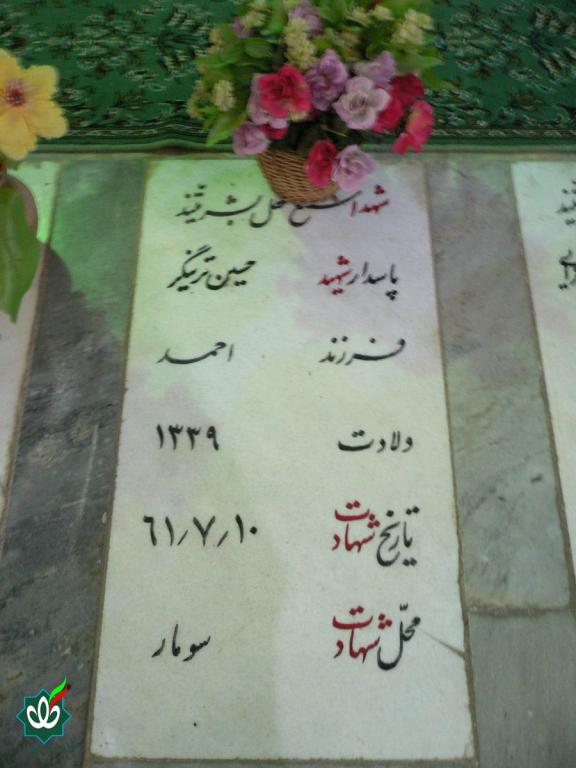 شهدا شمع محفل بشریتند
پاسدار شهید حسین ترینگر
فرزند احمد
ولادت ۱۳۳۹
تاریخ شهادت ۶۱/۷/۱۰
محلّ شهادت سومار